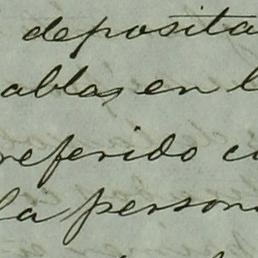 deposita
ablas en l
referido c
la person